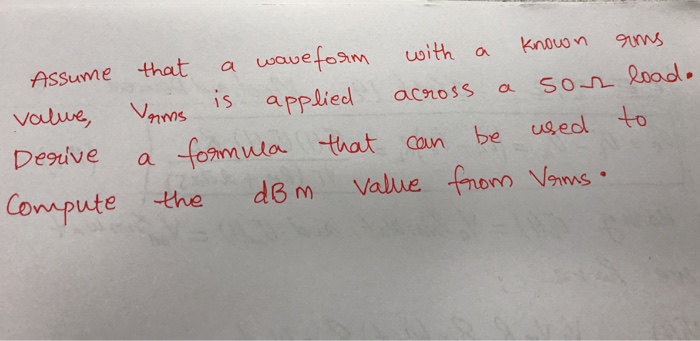 Assume that a waveform with a known rms
value, Vrms is applied across a 50Ω load.
Derive a formula that can be used to
Compute the dBm value from Vrms.